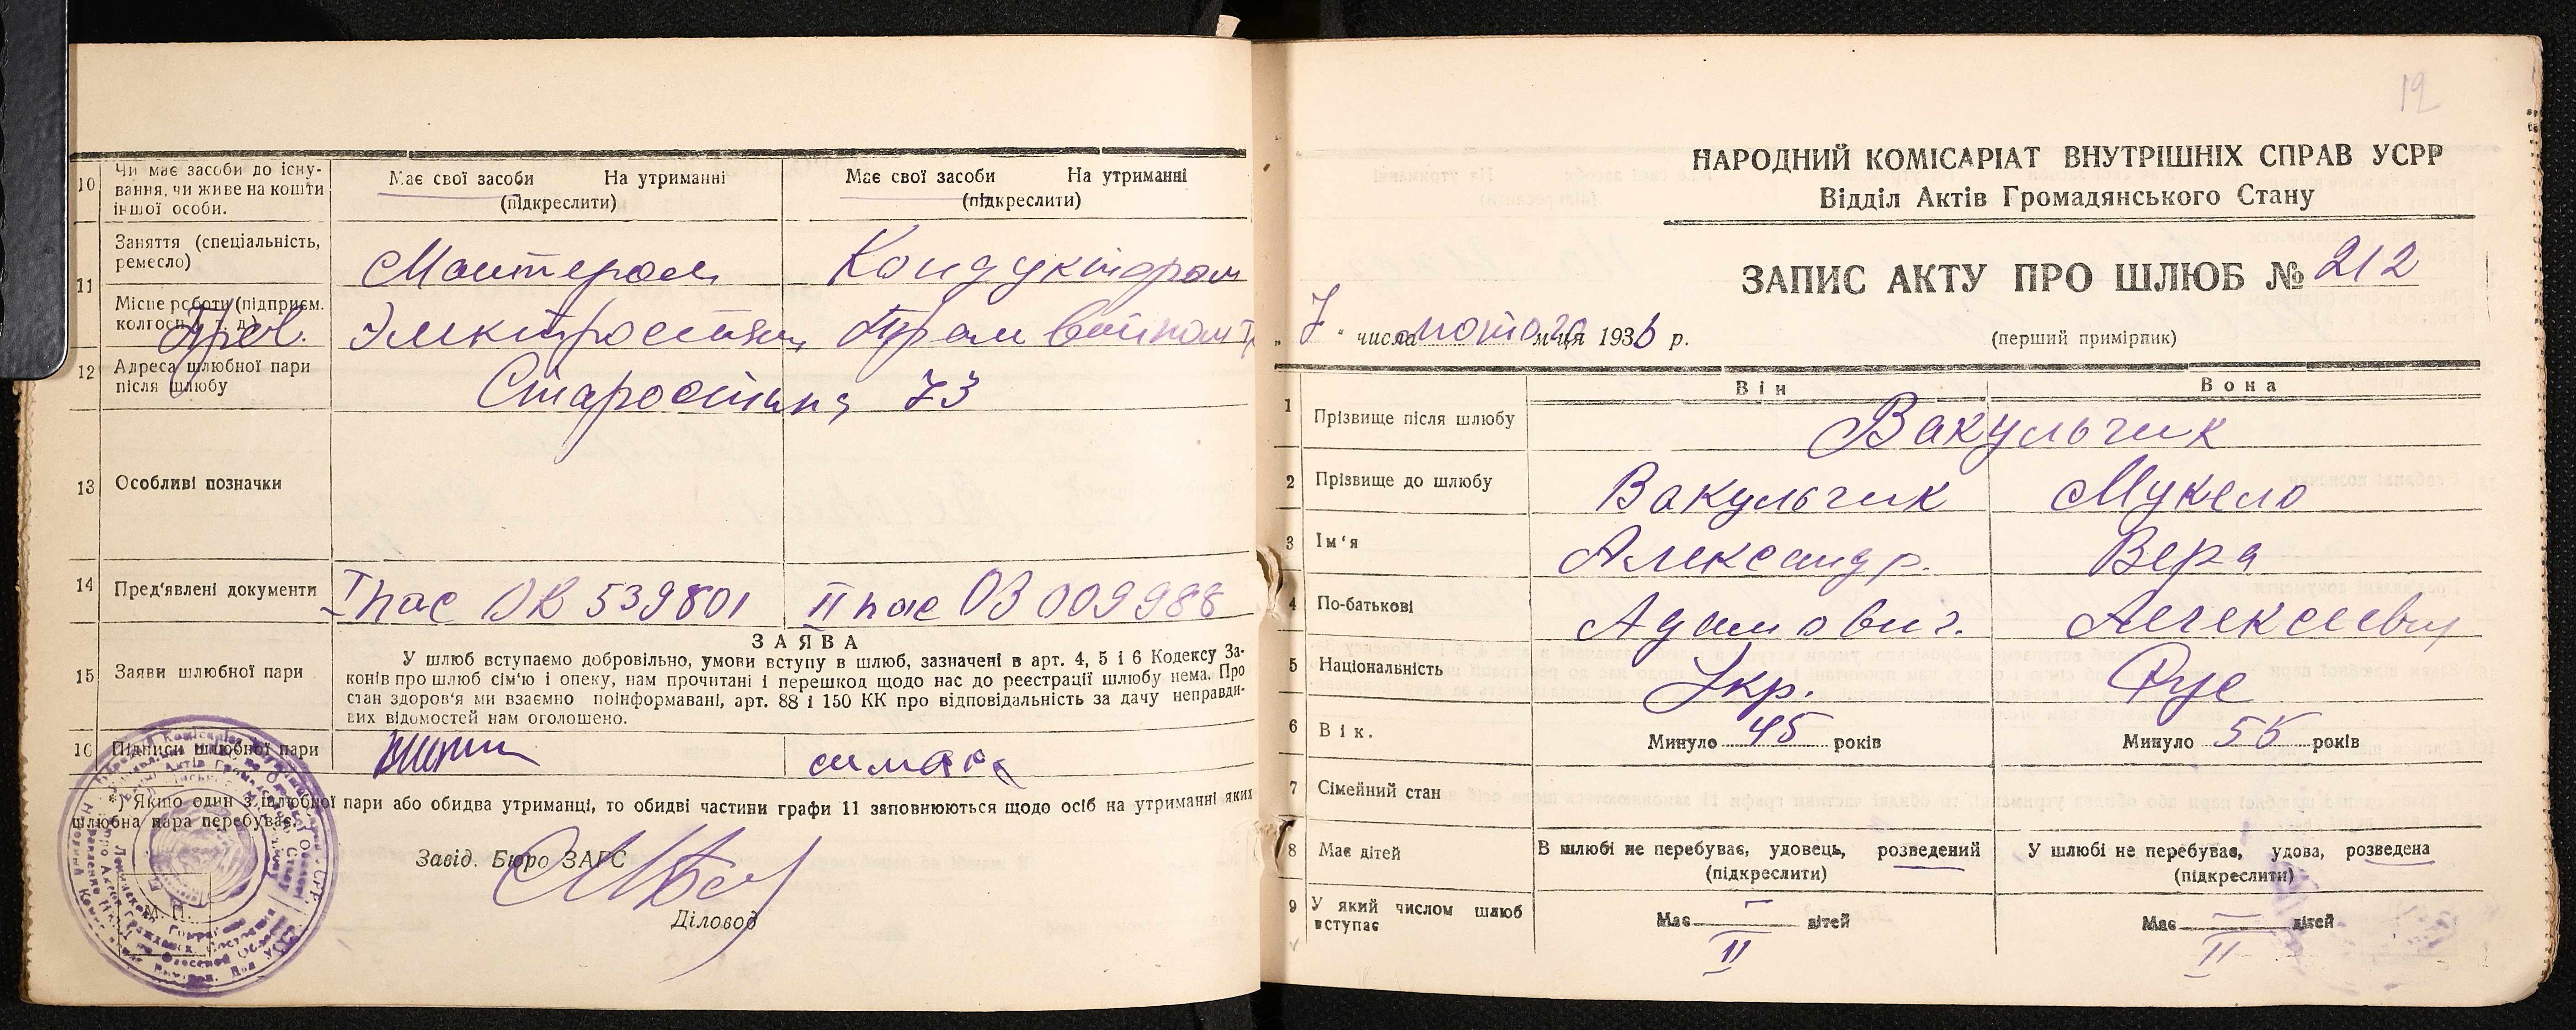 10 Чи має засоби до існу-
вання, чи живе на кошти
іншої особи.
Має свої засоби На утриманні
(підкреслити)
Має свої засоби На утриманні
(підкреслити)
11 Заняття (спеціальність,
ремесло)
Мастером
Кондуктором
Місце роботи (підприєм.
колгосп, і т. д.)
12 Адреса шлюбної пари
після шлюбу
73
13 Особливі позначки
14 Пред'явлені документи
I пас ОВ 539801
II пас ОЗ 009988
15 Заяви шлюбної пари
ЗАЯВА
У шлюб вступаємо добровільно, умови вступу в шлюб, зазначені в арт. 4, 5 і 6 Кодексу За-
конів про шлюб сім'ю і опеку, нам прочитані і перешкод щодо нас до реєстрації шлюбу нема. Про
стан здоров'я ми взаємно поінформавані, арт. 88 і 150 КК про відповідальність за дачу неправди-
вих відомостей нам оголошено.
16 Підписи шлюбної пари
*) Якщо один з шлюбної пари або обидва утриманці, то обидві частини графи 11 заповнюються щодо осіб на утриманні яких
шлюбна пара перебуває.
Завід. Бюро ЗАГС
М. П.
Діловод
12
НАРОДНИЙ КОМІСАРІАТ ВНУТРІШНІХ СПРАВ УСРР
Відділ Актів Громадянського Стану
ЗАПИС АКТУ ПРО ШЛЮБ № 212
„ 7 “ числа лютого м-ця 1936 р.
(перший примірник)
Він Вона
1 Прізвище після шлюбу Вакульчик
2 Прізвище до шлюбу Вакульчик Мукело
3 Ім'я Александр. Вера
4 По-батькові Адамович. Алексеевн
5 Національність Укр. Рус
6 Вік. Минуло 45 років Минуло 55 років
7 Сімейний стан
8 Має дітей
В шлюбі не перебуває, удовець, розведений
(підкреслити)
У шлюбі не перебуває, удова, розведена
(підкреслити)
9 У який числом шлюб
вступає
Має — дітей
Має — дітей
II
II